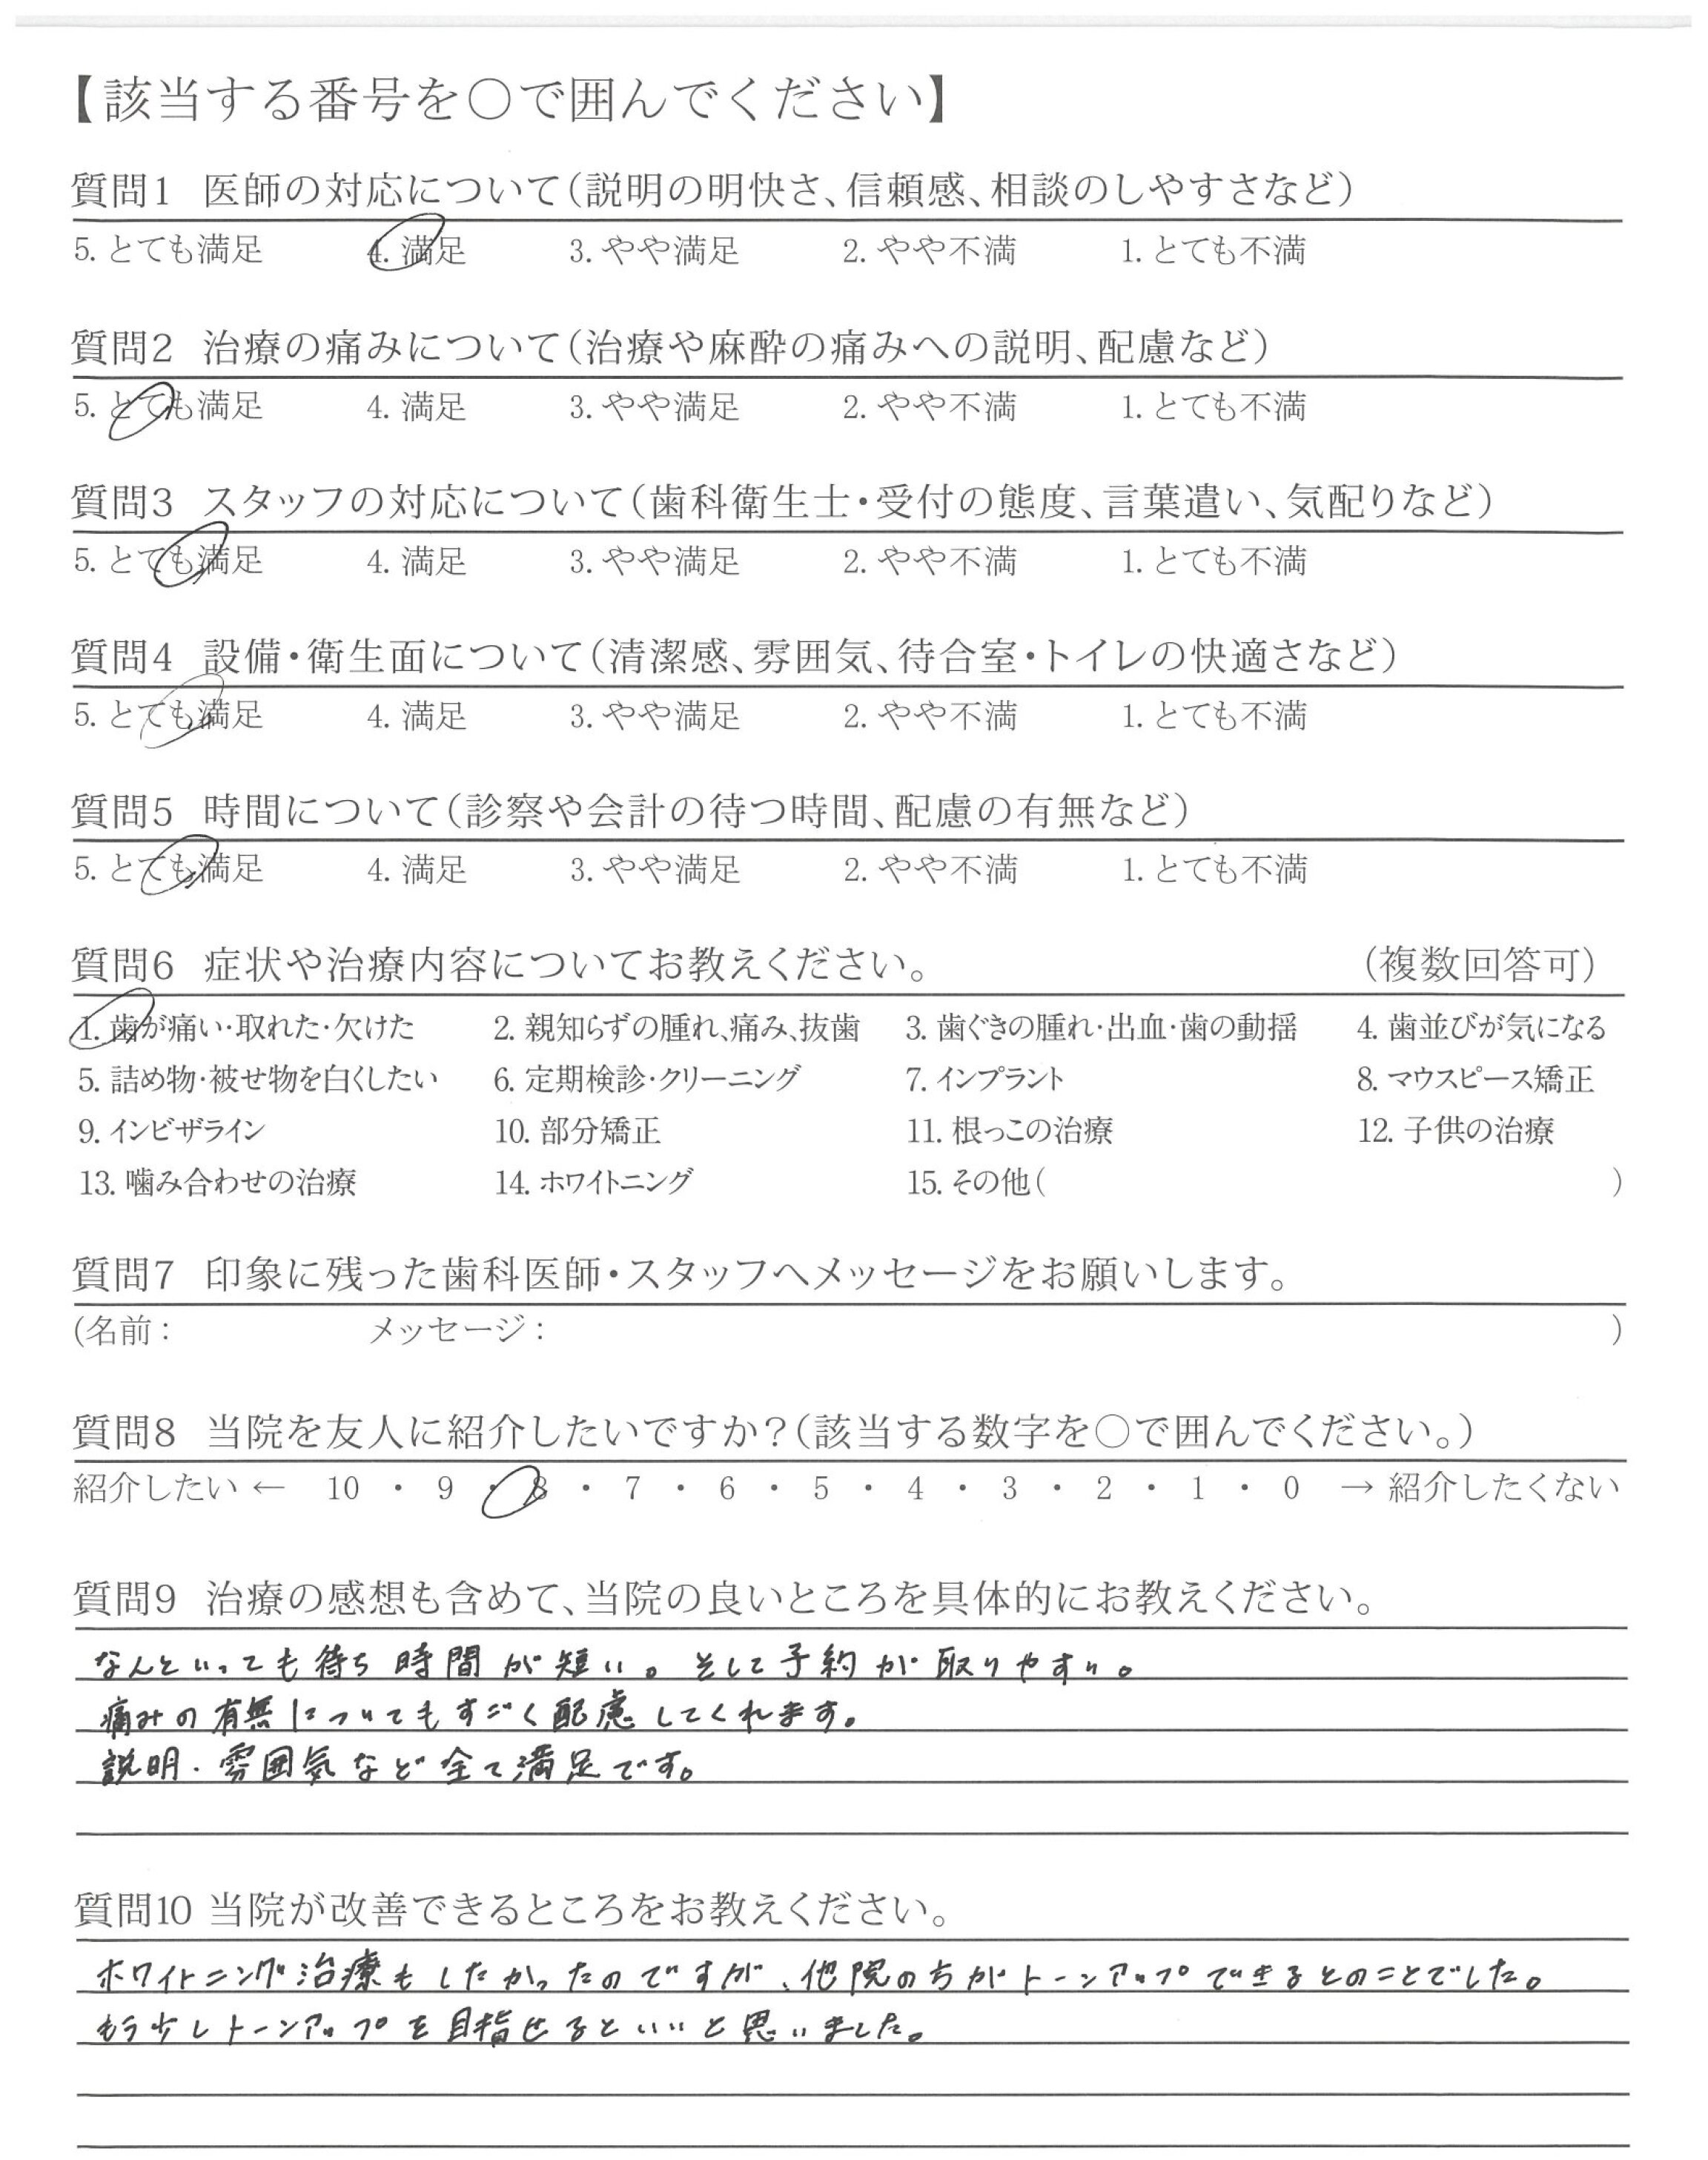 【該当する番号を○で囲んでください】
質問1 医師の対応について(説明の明快さ、信頼感、相談のしやすさなど)
5. とても満足 4. 満足 3. やや満足 2. やや不満 1. とても不満
質問2 治療の痛みについて(治療や麻酔の痛みへの説明、配慮など)
5. とても満足 4. 満足 3. やや満足 2. やや不満 1. とても不満
質問3 スタッフの対応について(歯科衛生士・受付の態度、言葉遣い、気配りなど)
5. とても満足 4. 満足 3. やや満足 2. やや不満 1. とても不満
質問4 設備・衛生面について(清潔感、雰囲気、待合室・トイレの快適さなど)
5. とても満足 4. 満足 3. やや満足 2. やや不満 1. とても不満
質問5 時間について(診察や会計の待つ時間、配慮の有無など)
5. とても満足 4. 満足 3. やや満足 2. やや不満 1. とても不満
質問6 症状や治療内容についてお教えください。 (複数回答可)
1. 歯が痛い・取れた・欠けた 2. 親知らずの腫れ、痛み、抜歯 3. 歯ぐきの腫れ・出血・歯の動揺 4. 歯並びが気になる
5. 詰め物・被せ物を白くしたい 6. 定期検診・クリーニング 7. インプラント 8. マウスピース矯正
9. インビザライン 10. 部分矯正 11. 根っこの治療 12. 子供の治療
13. 噛み合わせの治療 14. ホワイトニング 15. その他( )
質問7 印象に残った歯科医師・スタッフへメッセージをお願いします。
(名前: メッセージ: )
質問8 当院を友人に紹介したいですか?(該当する数字を○で囲んでください。)
紹介したい ← 10 ・ 9 ・ 8 ・ 7 ・ 6 ・ 5 ・ 4 ・ 3 ・ 2 ・ 1 ・ 0 → 紹介したくない
質問9 治療の感想も含めて、当院の良いところを具体的にお教えください。
なんといっても待ち時間が短い。そして予約が取りやすい。
痛みの有無についてもすごく配慮してくれます。
説明・雰囲気など全て満足です。
質問10 当院が改善できるところをお教えください。
ホワイトニング治療もしたかったのですが、他院の方がトーンアップできるとのことでした。
もう少しトーンアップを目指せるといいと思いました。